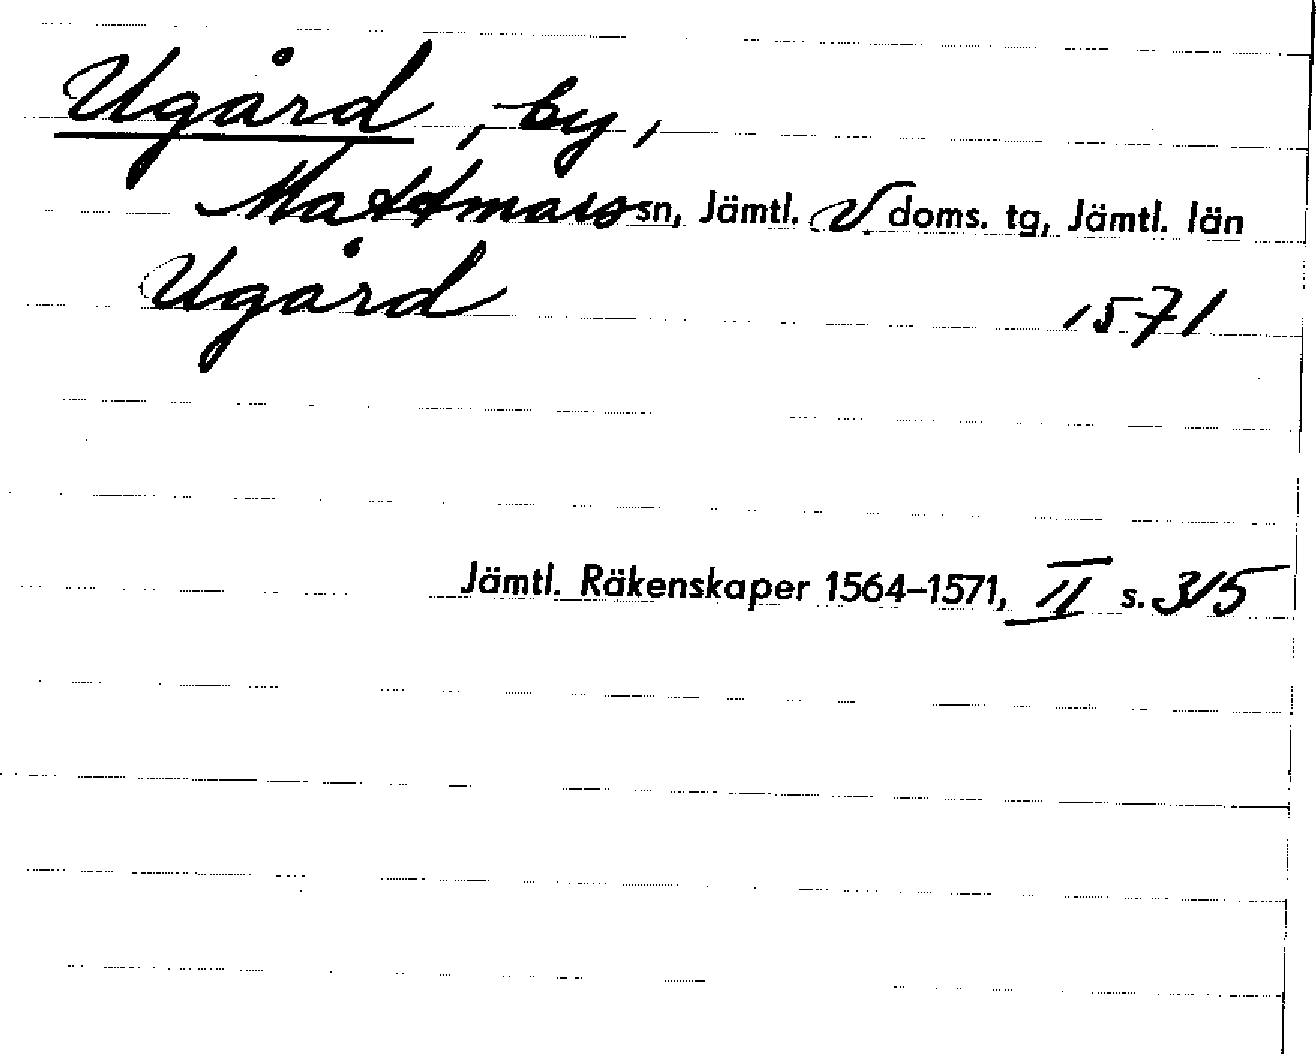 Ugård, by,
Mattmars sn, Jämtl. V doms. tg, Jämtl. län
Ugård 1571
Jämtl. Räkenskaper 1564–1571, II s. 315